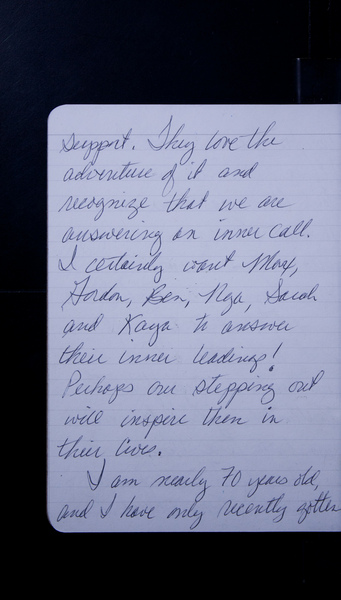 support. They love the
adventure of it and
recognize that we are
answering an inner call.
I certainly want Max,
Gordon, Ben, Nga, Sarah
and Kaya to answer
their inner leadings!
Perhaps our stepping out
will inspire them in
their lives.
I am nearly 70 years old,
and I have only recently gotten